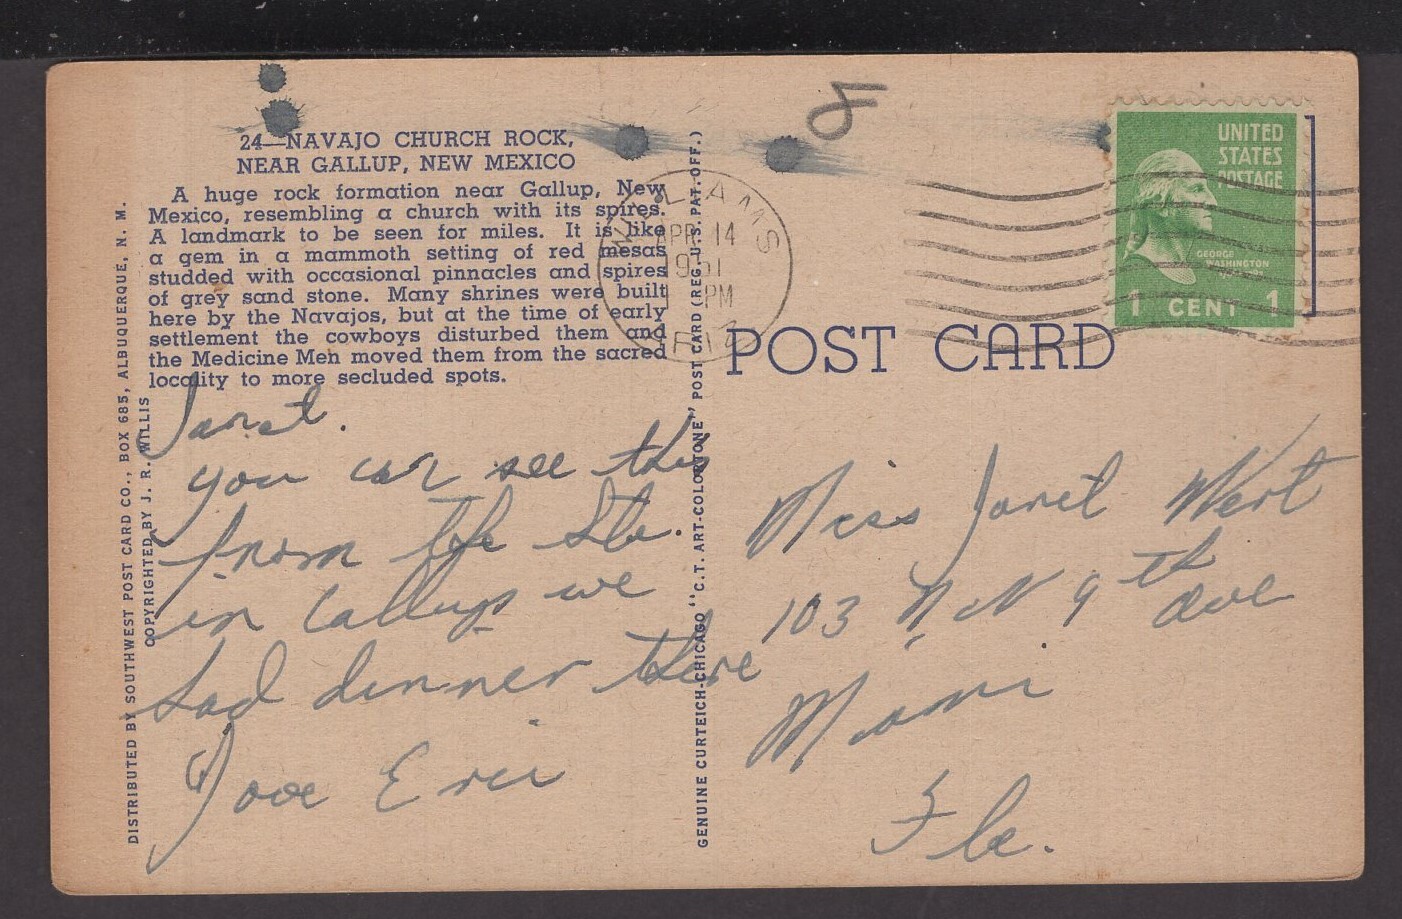 24—NAVAJO CHURCH ROCK,
NEAR GALLUP, NEW MEXICO
A huge rock formation near Gallup, New
Mexico, resembling a church with its spires.
A landmark to be seen for miles. It is like
a gem in a mammoth setting of red mesas
studded with occasional pinnacles and spires
of grey sand stone. Many shrines were built
here by the Navajos, but at the time of early
settlement the cowboys disturbed them and
the Medicine Men moved them from the sacred
locality to more secluded spots.
DISTRIBUTED BY SOUTHWEST POST CARD CO., BOX 685, ALBUQUERQUE, N. M.
COPYRIGHTED BY J. R. WILLIS
Janet.
you can see this
from the Sta.
in Gallup we
had dinner there
Love
GENUINE CURTEICH-CHICAGO "C.T. ART-COLORTONE" POST CARD (REG. U.S. PAT. OFF.)
WILLIAMS
APR 14
1951
PM
ARIZ
POST CARD
UNITED
STATES
POSTAGE
GEORGE
WASHINGTON
1 CENT 1
Miss Janet Wert
103 N W 9th Ave
Miami
Fla.